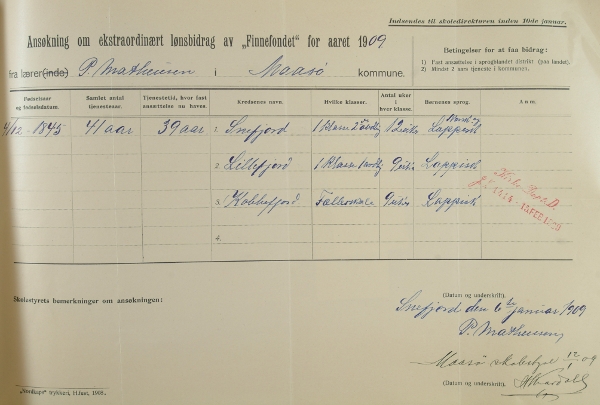 Indsendes til skoledirektøren inden 10de januar.
Ansøkning om ekstraordinært lønsbidrag av „Finnefondet“ for aaret 1909
fra lærer(inde) P. Mathiesen i Maasø kommune.
Betingelser for at faa bidrag:
1) Fast ansættelse i sprogblandet distrikt (paa landet).
2) Mindst 2 aars tjeneste i kommunen.
Fødselsaar og fødselsdatum. Samlet antal tjenesteaar. Tjenestetid, hvor fast ansættelse nu haves. Kredsenes navn. Hvilke klasser. Antal uker i hver klasse. Børnenes sprog. Anm.
12 1845 41 aar 39 aar 1. Snefjord 12 Norsk og Lappisk
2. Lillefjord 9 Lappisk
3. Kobbefjord Fælleskole 9 Lappisk
4.
Skolestyrets bemerkninger om ansøkningen:
(Datum og underskrift).
Snefjord den 6te januar 1909
P. Mathiesen
Maasø skolestyre 12/1 09
(Datum og underskrift).
„Nordkaps“ trykkeri, H.fest, 1908.